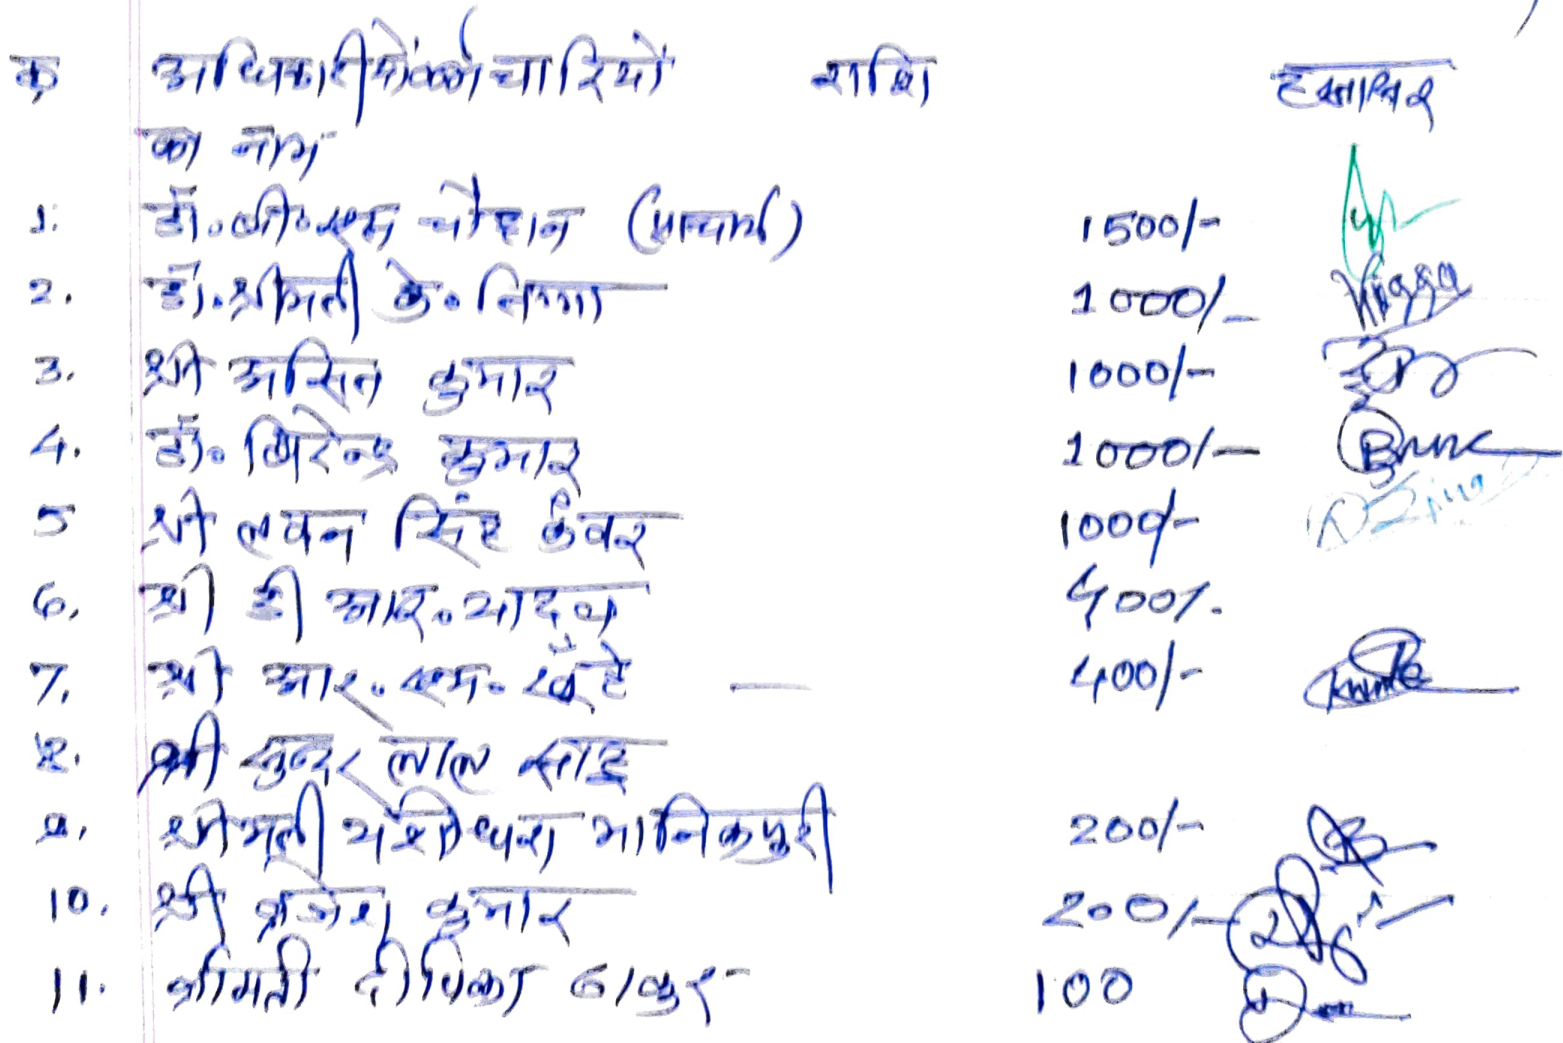 क्र अधिकारीयों कर्मचारियों राशि हस्ताक्षर
का नाम
1. डॉ. बी. एस चौहान (प्राचार्य) 1500/-
2. डॉ. श्रीमती के. निग्गा 1000/-
3. श्री असित कुमार 1000/-
4. डॉ. बिरेन्द्र कुमार 1000/-
5 श्री लखन सिंह कंवर 1000/-
6. श्री डी आर. यादव 400/-
7. श्री आर. एम. खूँटे — 400/-
8. श्री सुन्दर लाल साहू
9. श्रीमती यशोधरा मानिकपुरी 200/-
10. श्री ब्रजेश कुमार 200/-
11. श्रीमती दीपिका ठाकुर 100